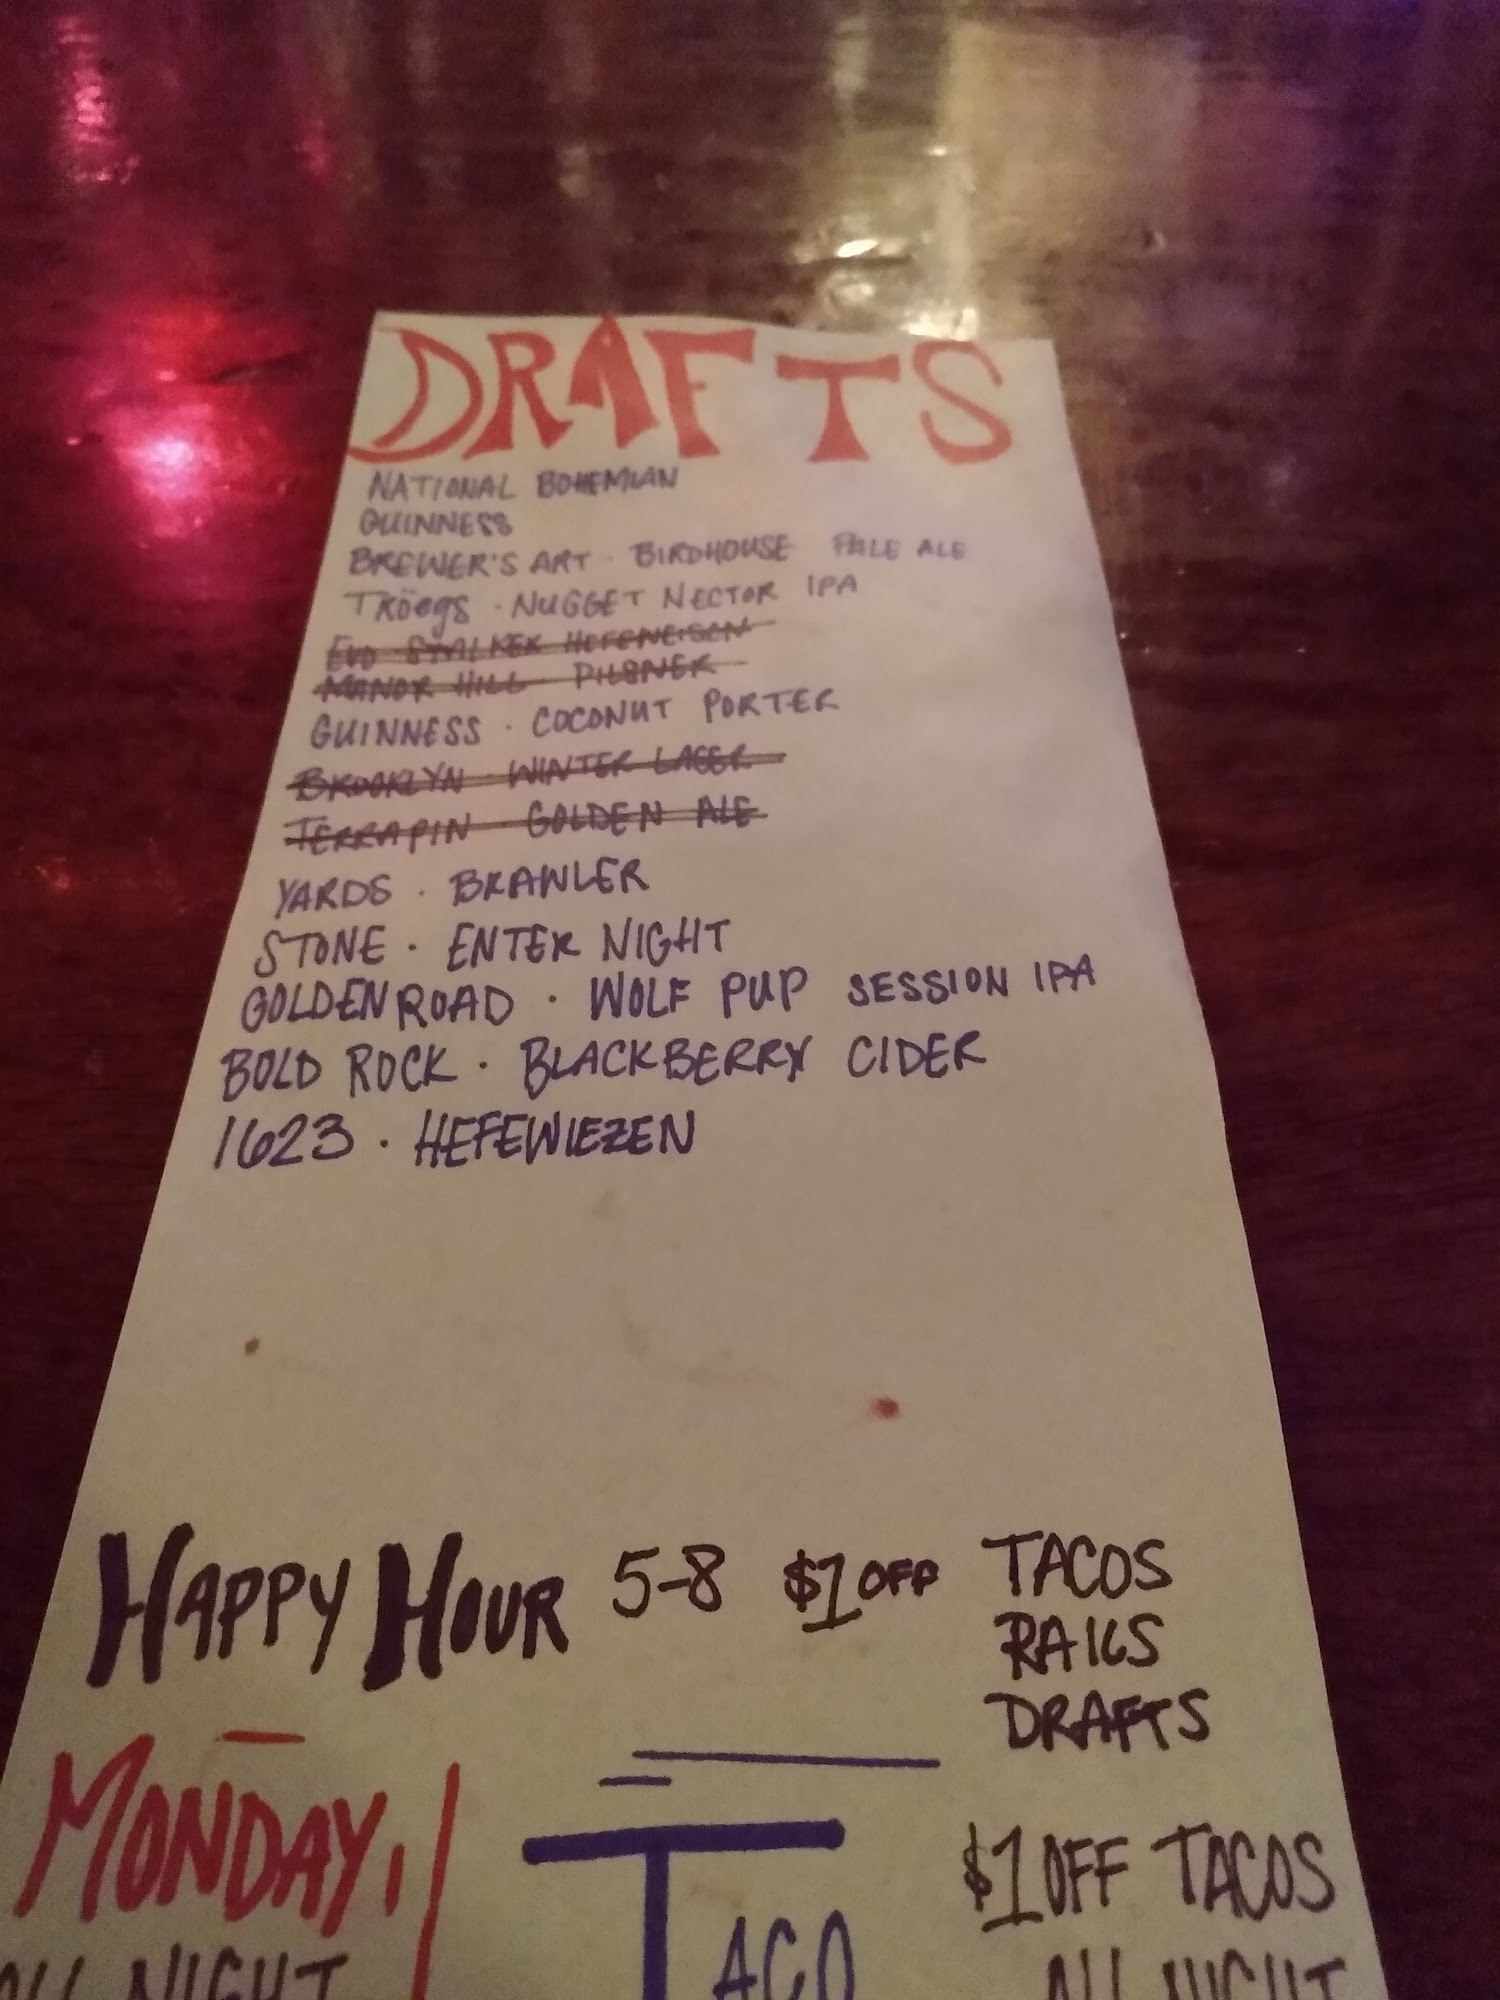 DRAFTS
NATIONAL BOHEMIAN
GUINNESS
BREWER'S ART · BIRDHOUSE PALE ALE
TRÖEGS · NUGGET NECTOR IPA
EVO STALKER HEFEWEISEN
MANOR HILL PILSNER
GUINNESS · COCONUT PORTER
BROOKLYN · WINTER LAGER
TERRAPIN GOLDEN ALE
YARDS · BRAWLER
STONE · ENTER NIGHT
GOLDEN ROAD · WOLF PUP SESSION IPA
BOLD ROCK · BLACKBERRY CIDER
1623 · HEFEWIEZEN
HAPPY HOUR 5-8 $1 OFF TACOS
RAILS
DRAFTS
MONDAY,
TACO
$1 OFF TACOS
ALL NIGHT
ALL NIGHT